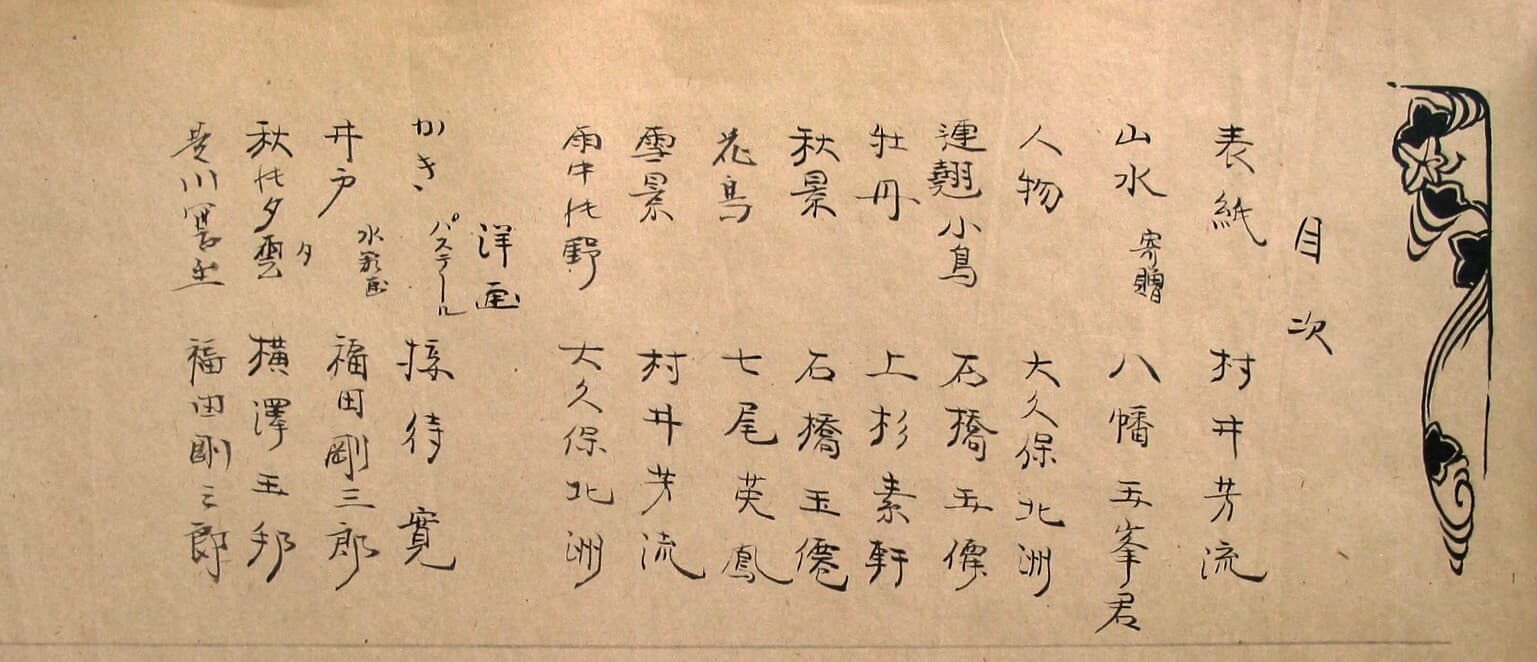 目次
表紙 村井芳流
山水 寄贈 八幡五峯君
人物 大久保北洲
連翹小鳥 石橋玉僊
牡丹 上杉素軒
秋景 石橋玉僊
花鳥 七尾英鳳
雪景 村井芳流
雨中の野 大久保北洲
洋画
かき パステール 接待 寛
井戸 水彩画 福田剛三郎
秋の夕雲 〃 横澤玉邦
川 福田剛三郎